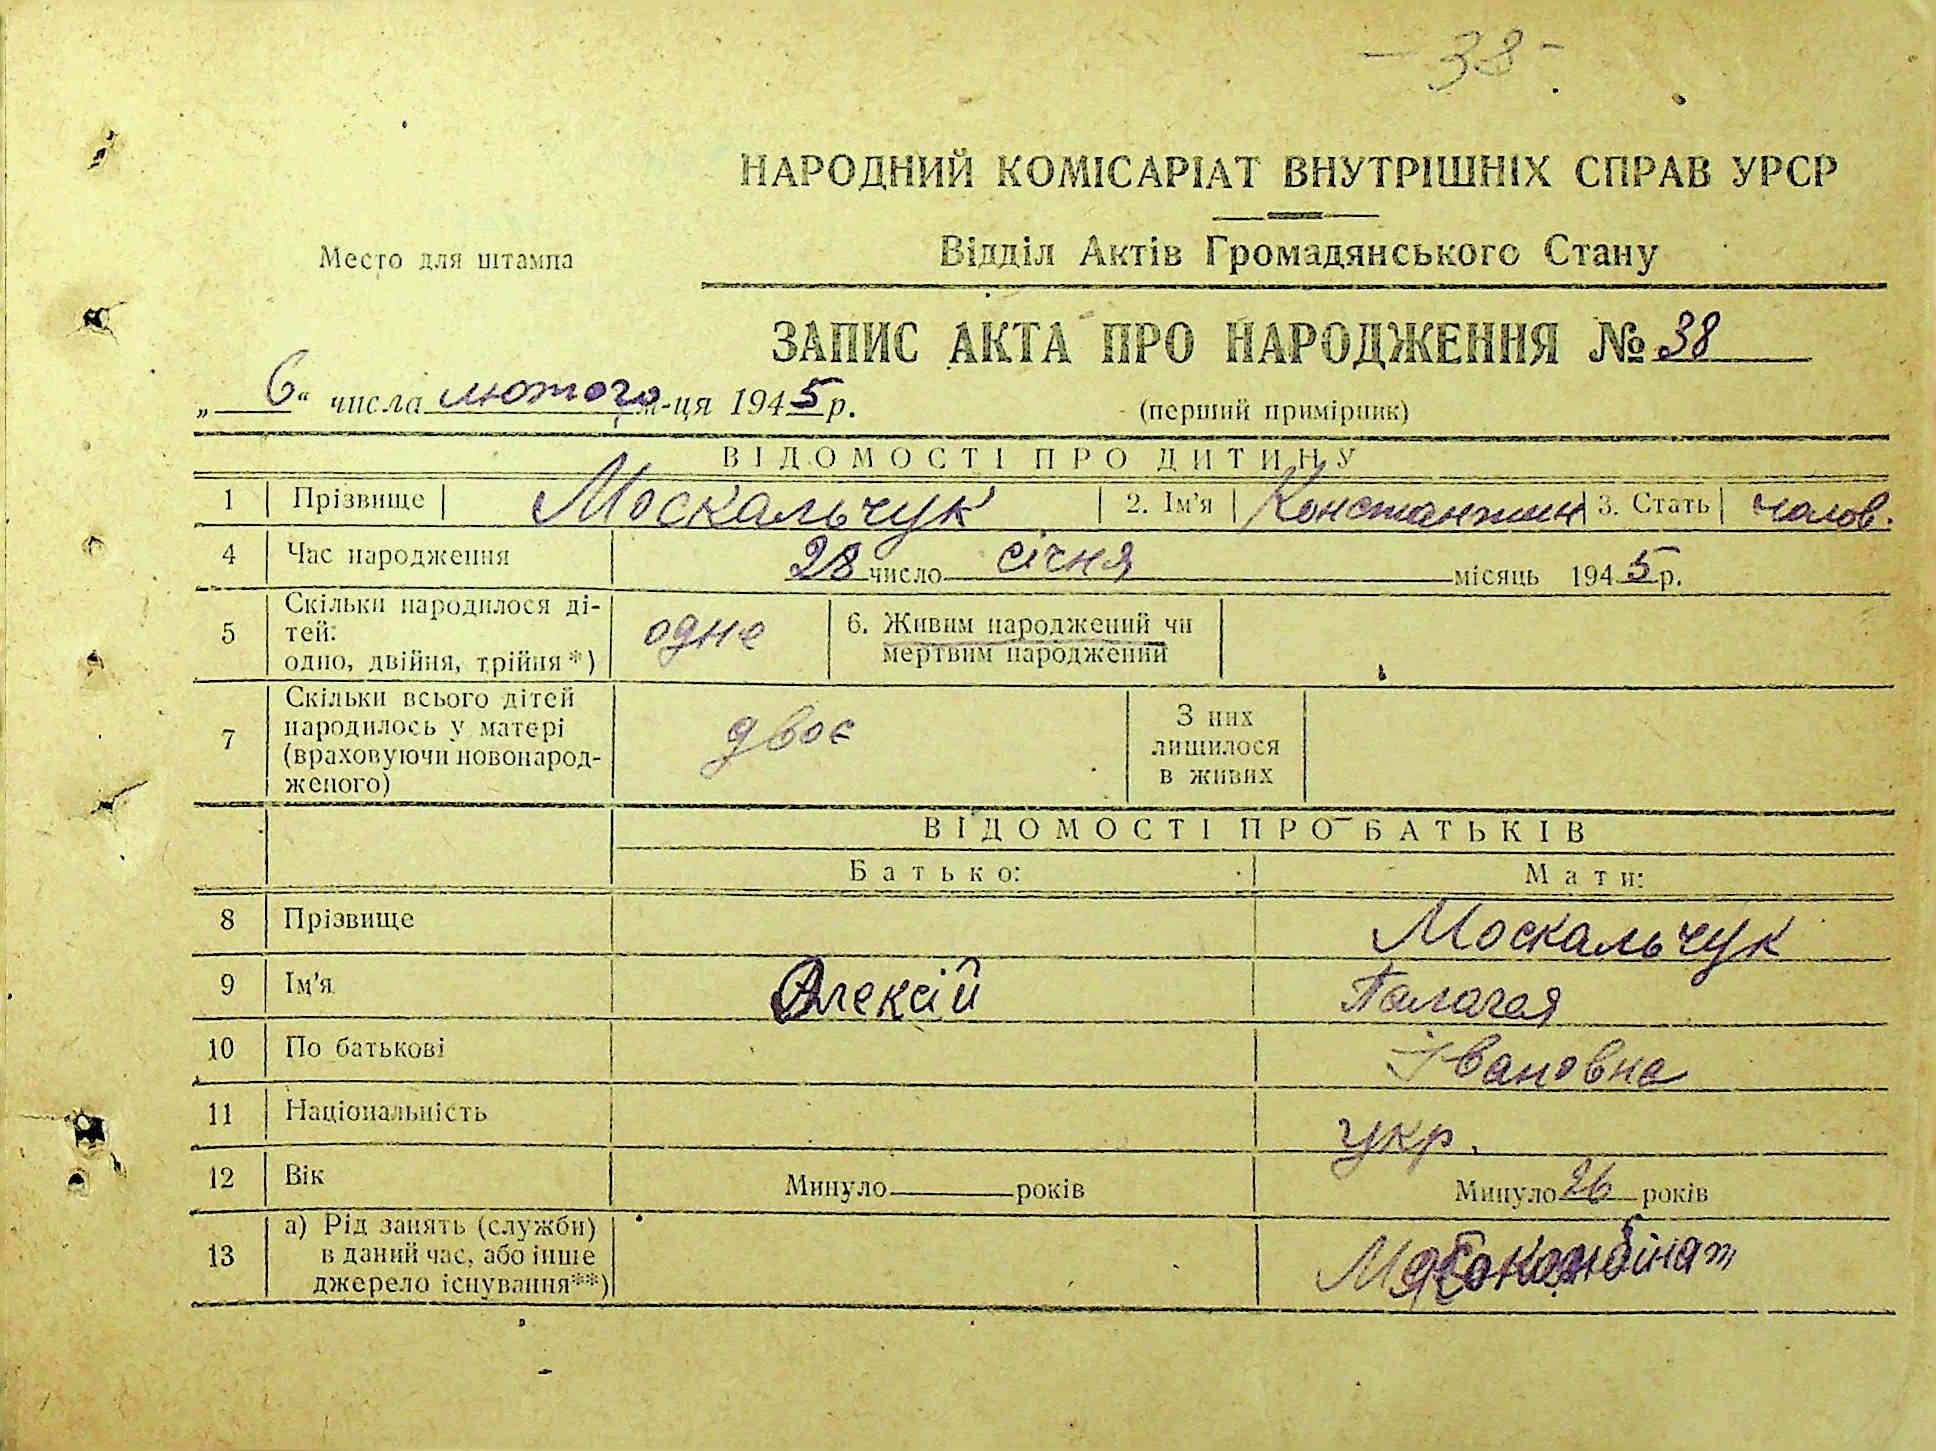 - 38 -
НАРОДНИЙ КОМІСАРІАТ ВНУТРІШНІХ СПРАВ УРСР
Место для штампа
Відділ Актів Громадянського Стану
ЗАПИС АКТА ПРО НАРОДЖЕННЯ № 38
„6“ числа лютого м-ця 1945 р.
(перший примірник)
ВІДОМОСТІ ПРО ДИТИНУ
1 Прізвище Москальчук 2. Ім'я Константин 3. Стать чолов.
4 Час народження 28 число січня місяць 1945 р.
5 Скільки народилося ді-
тей:
одно, двійня, трійня*) одне 6. Живим народжений чи
мертвим народжений
7 Скільки всього дітей
народилось у матері
(враховуючи новонарод-
женого) двоє З них
лишилося
в живих
ВІДОМОСТІ ПРО БАТЬКІВ
Батько: Мати:
8 Прізвище Москальчук
9 Ім'я Алексій Палагея
10 По батькові Івановна
11 Національність укр.
12 Вік Минуло ___ років Минуло 26 років
13 а) Рід занять (служби)
в даний час, або інше
джерело існування**) Мясокомбінат